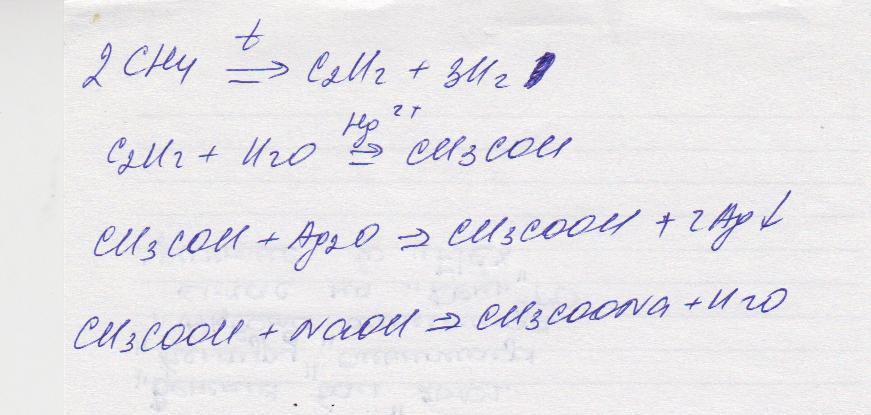 2 CH4 t ⇒ C2H2 + 3H2
C2H2 + H2O Hg2+ ⇒ CH3COH
CH3COH + Ag2O ⇒ CH3COOH + 2Ag↓
CH3COOH + NaOH ⇒ CH3COONa + H2O